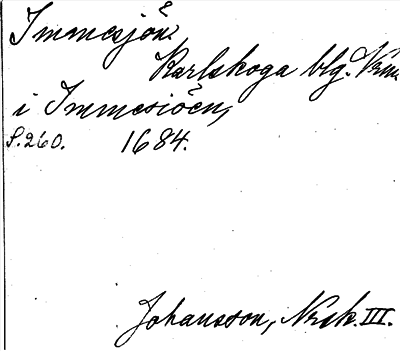 Immesjön
Karlskoga blg. Vrml.
i Immesiöen,
S. 260. 1684.
Johansson, Nrsk. III.